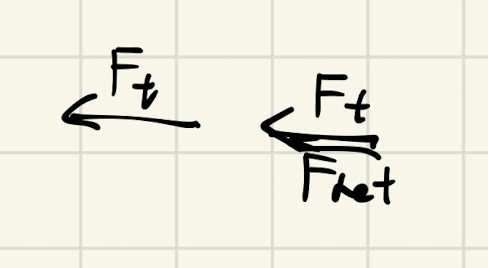 Ft
Ft
Fnet